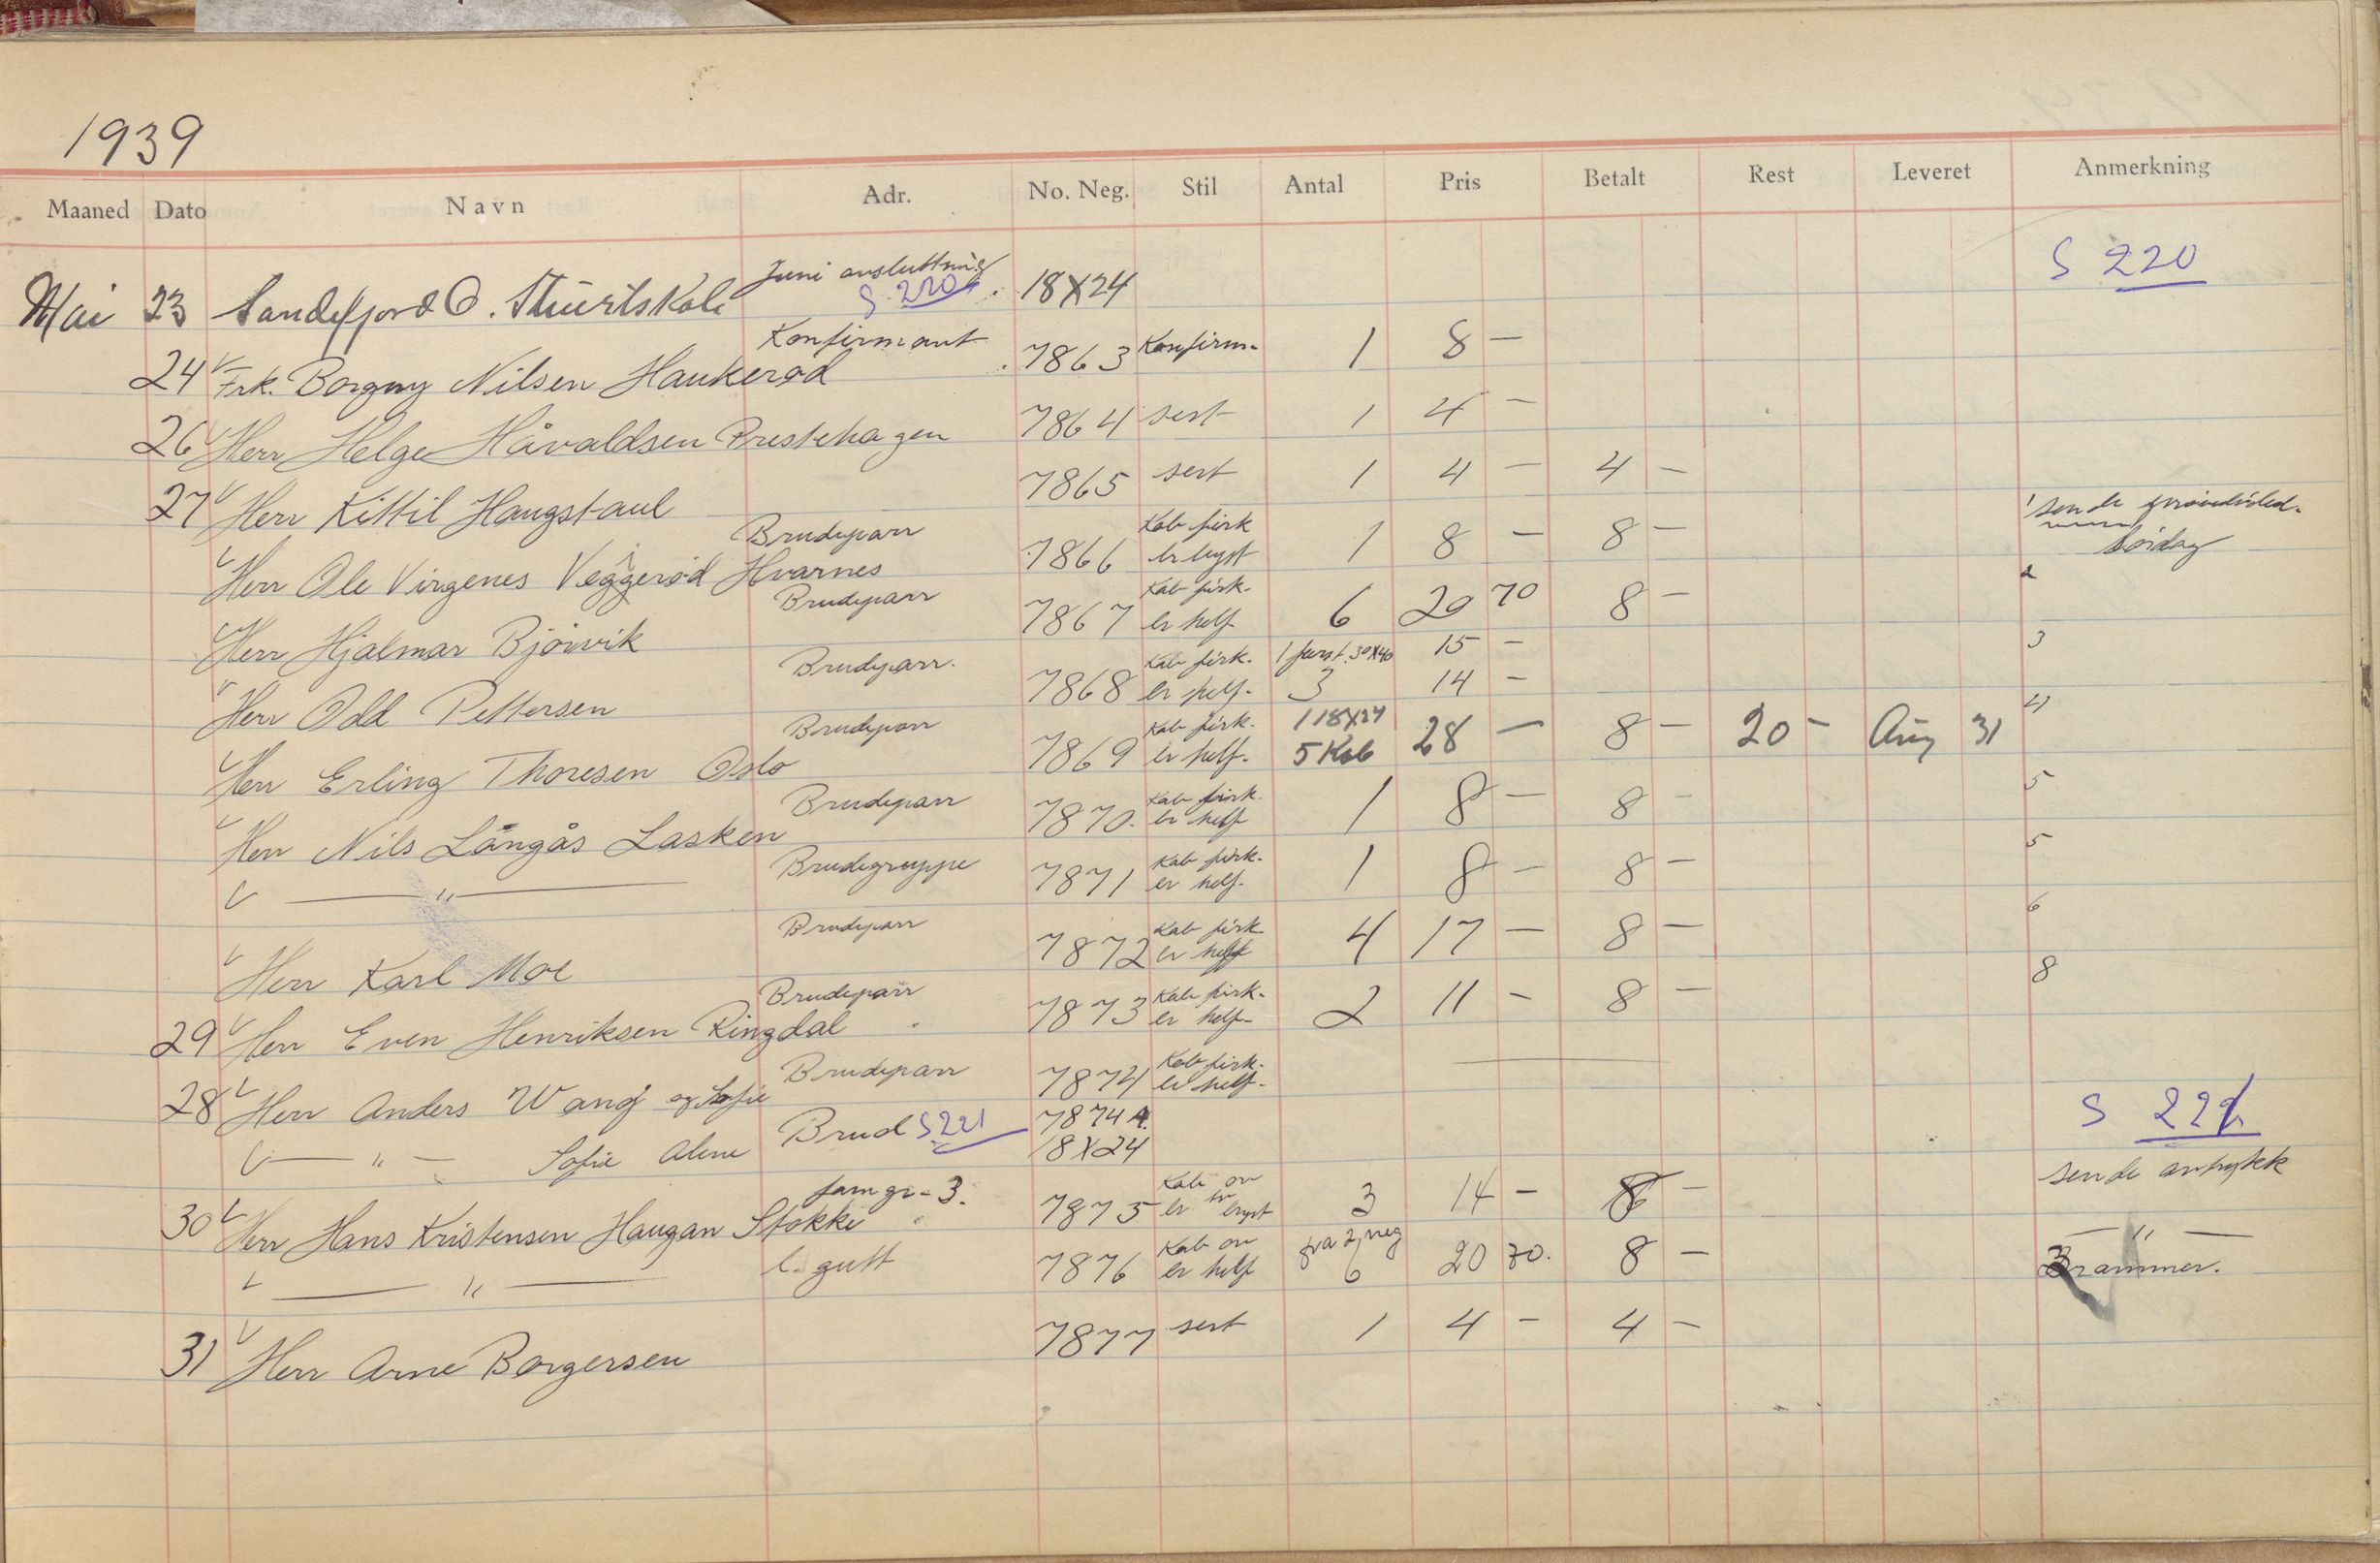 1939
Maaned Dato Navn Adr. No. Neg. Stil Antal Pris Betalt Rest Leveret Anmerkning
Juni avsluttning S 220
Mai 23 Sandefjord O. Stuertskole S. 220 18X24
Konfirmant
24 Frk. Borgny Nilsen Haukerød 7863 Konfirm. 1 8 –
26 Herr Helge Håvaldsen Prestehagen 7864 sert 1 4 –
27 Herr Kittil Haugstaul 7865 sert 1 4 – 4 –
Brudeparr Kab firk 1 sende
Herr Ole Virgenes Veggerød Hvarnes 7866 br lyst 1 8 – 8 –
Brudeparr Kab firk. 2
Herr Hjalmar Bjørvik 7867 er helf 6 20 70 8 –
Brudeparr. Kab firk. 1 forst. 30X40 15 – 3
Herr Odd Pettersen 7868 er helf. 3 14 –
Brudeparr Kab firk. 1 18X24 4
Herr Erling Thoresen Oslo 7869 er helf. 5 Kab 28 – 8 – 20 – Aug 31
Brudeparr Kab firk. 5
Herr Nils Långås Lasken 7870. er helf 1 8 – 8 –
Brudegruppe Kab firk. 5
— " — 7871 er helf. 1 8 – 8 –
Brudeparr Kab firk 6
Herr Karl Moe 7872 er helf 4 17 – 8 –
Brudeparr Kab firk. 8
29 Herr Even Henriksen Ringdal 7873 er helf. 2 11 – 8 –
Brudeparr Kab firk.
28 Herr Anders Wang og Sofie 7874 er helf.
Brud S 221 7874 A. S 221
— " — Sofie Alene 18X24
fam gr. 3. Kab ov sende avtrykk
30 Herr Hans Kristensen Haugan Stokke 7875 er 3 14 – 8 –
l. gutt Kab ov fra 2 neg — " —
— " — 7876 er helf 6 20 70. 8 – 3 rammer.
31 Herr Arne Borgersen 7877 sert 1 4 – 4 –